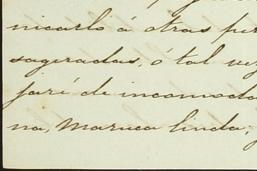 nicarlo á otras per
sageradas, ó tal vez
jaré de incomoda
na, Maruca linda,